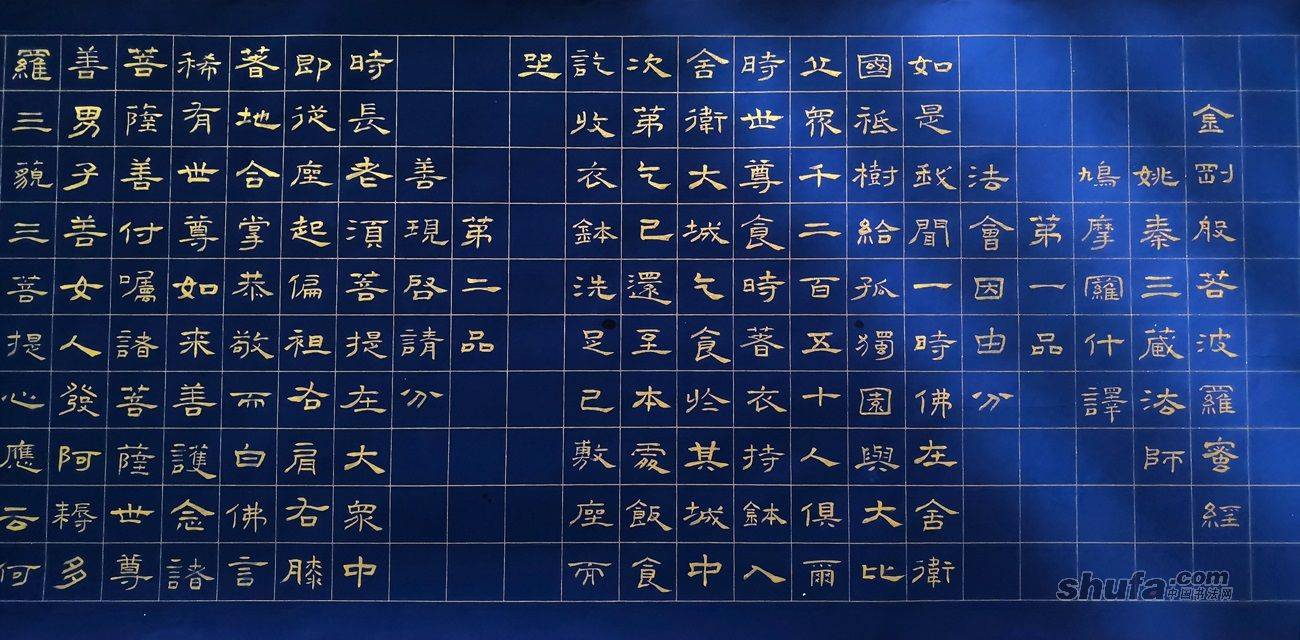 金剛般若波羅蜜經
姚秦三藏法師
鳩摩羅什譯
第一品
法會因由分
如是我聞一時佛在舍衛
國祇樹給孤獨園與大比
丘眾千二百五十人俱爾
時世尊食時著衣持鉢入
舍衛大城乞食於其城中
次第乞已還至本處飯食
訖收衣鉢洗足已敷座而
坐
第二品
善現啓請分
時長老須菩提在大眾中
即從座起偏袒右肩右膝
著地合掌恭敬而白佛言
稀有世尊如来善護念諸
菩薩善付囑諸菩薩世尊
善男子善女人發阿耨多
羅三藐三菩提心應云何
shufa.com
中国书法网